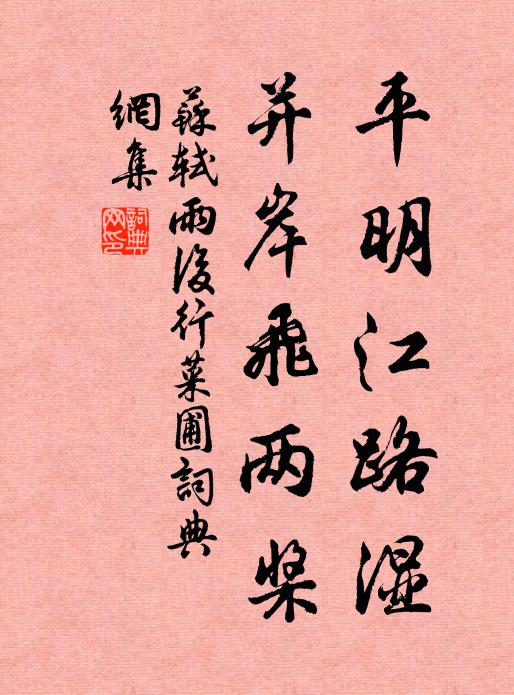 平明江路湿
并岸飛两槳
蘇軾雨後行菜圃詞典
網集
詞典
网印